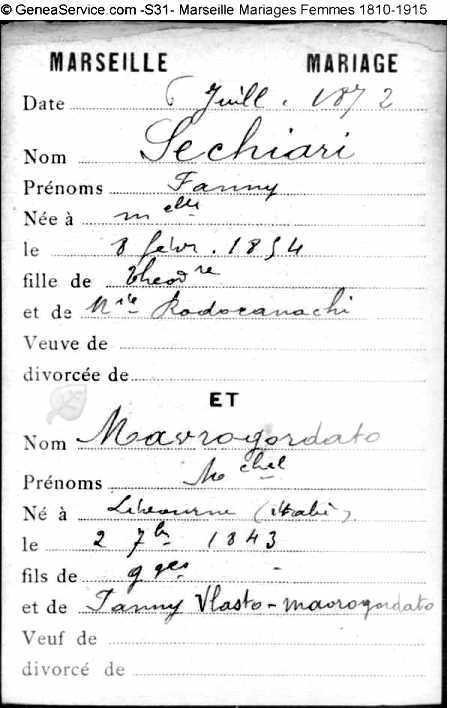 © GeneaService.com -S31- Marseille Mariages Femmes 1810-1915
MARSEILLE MARIAGE
Date 6 Juill. 1872
Nom Sechiari
Prénoms Fanny
Née à Melle
le 8 févr. 1854
fille de Theodre
et de Mie Rodocanachi
Veuve de
divorcée de
ET
Nom Mavrogordato
Prénoms Mchel
Né à Livourne (Italie)
le 2 7bre 1843
fils de Gges
et de Fanny Vlasto-mavrogordato
Veuf de
divorcé de